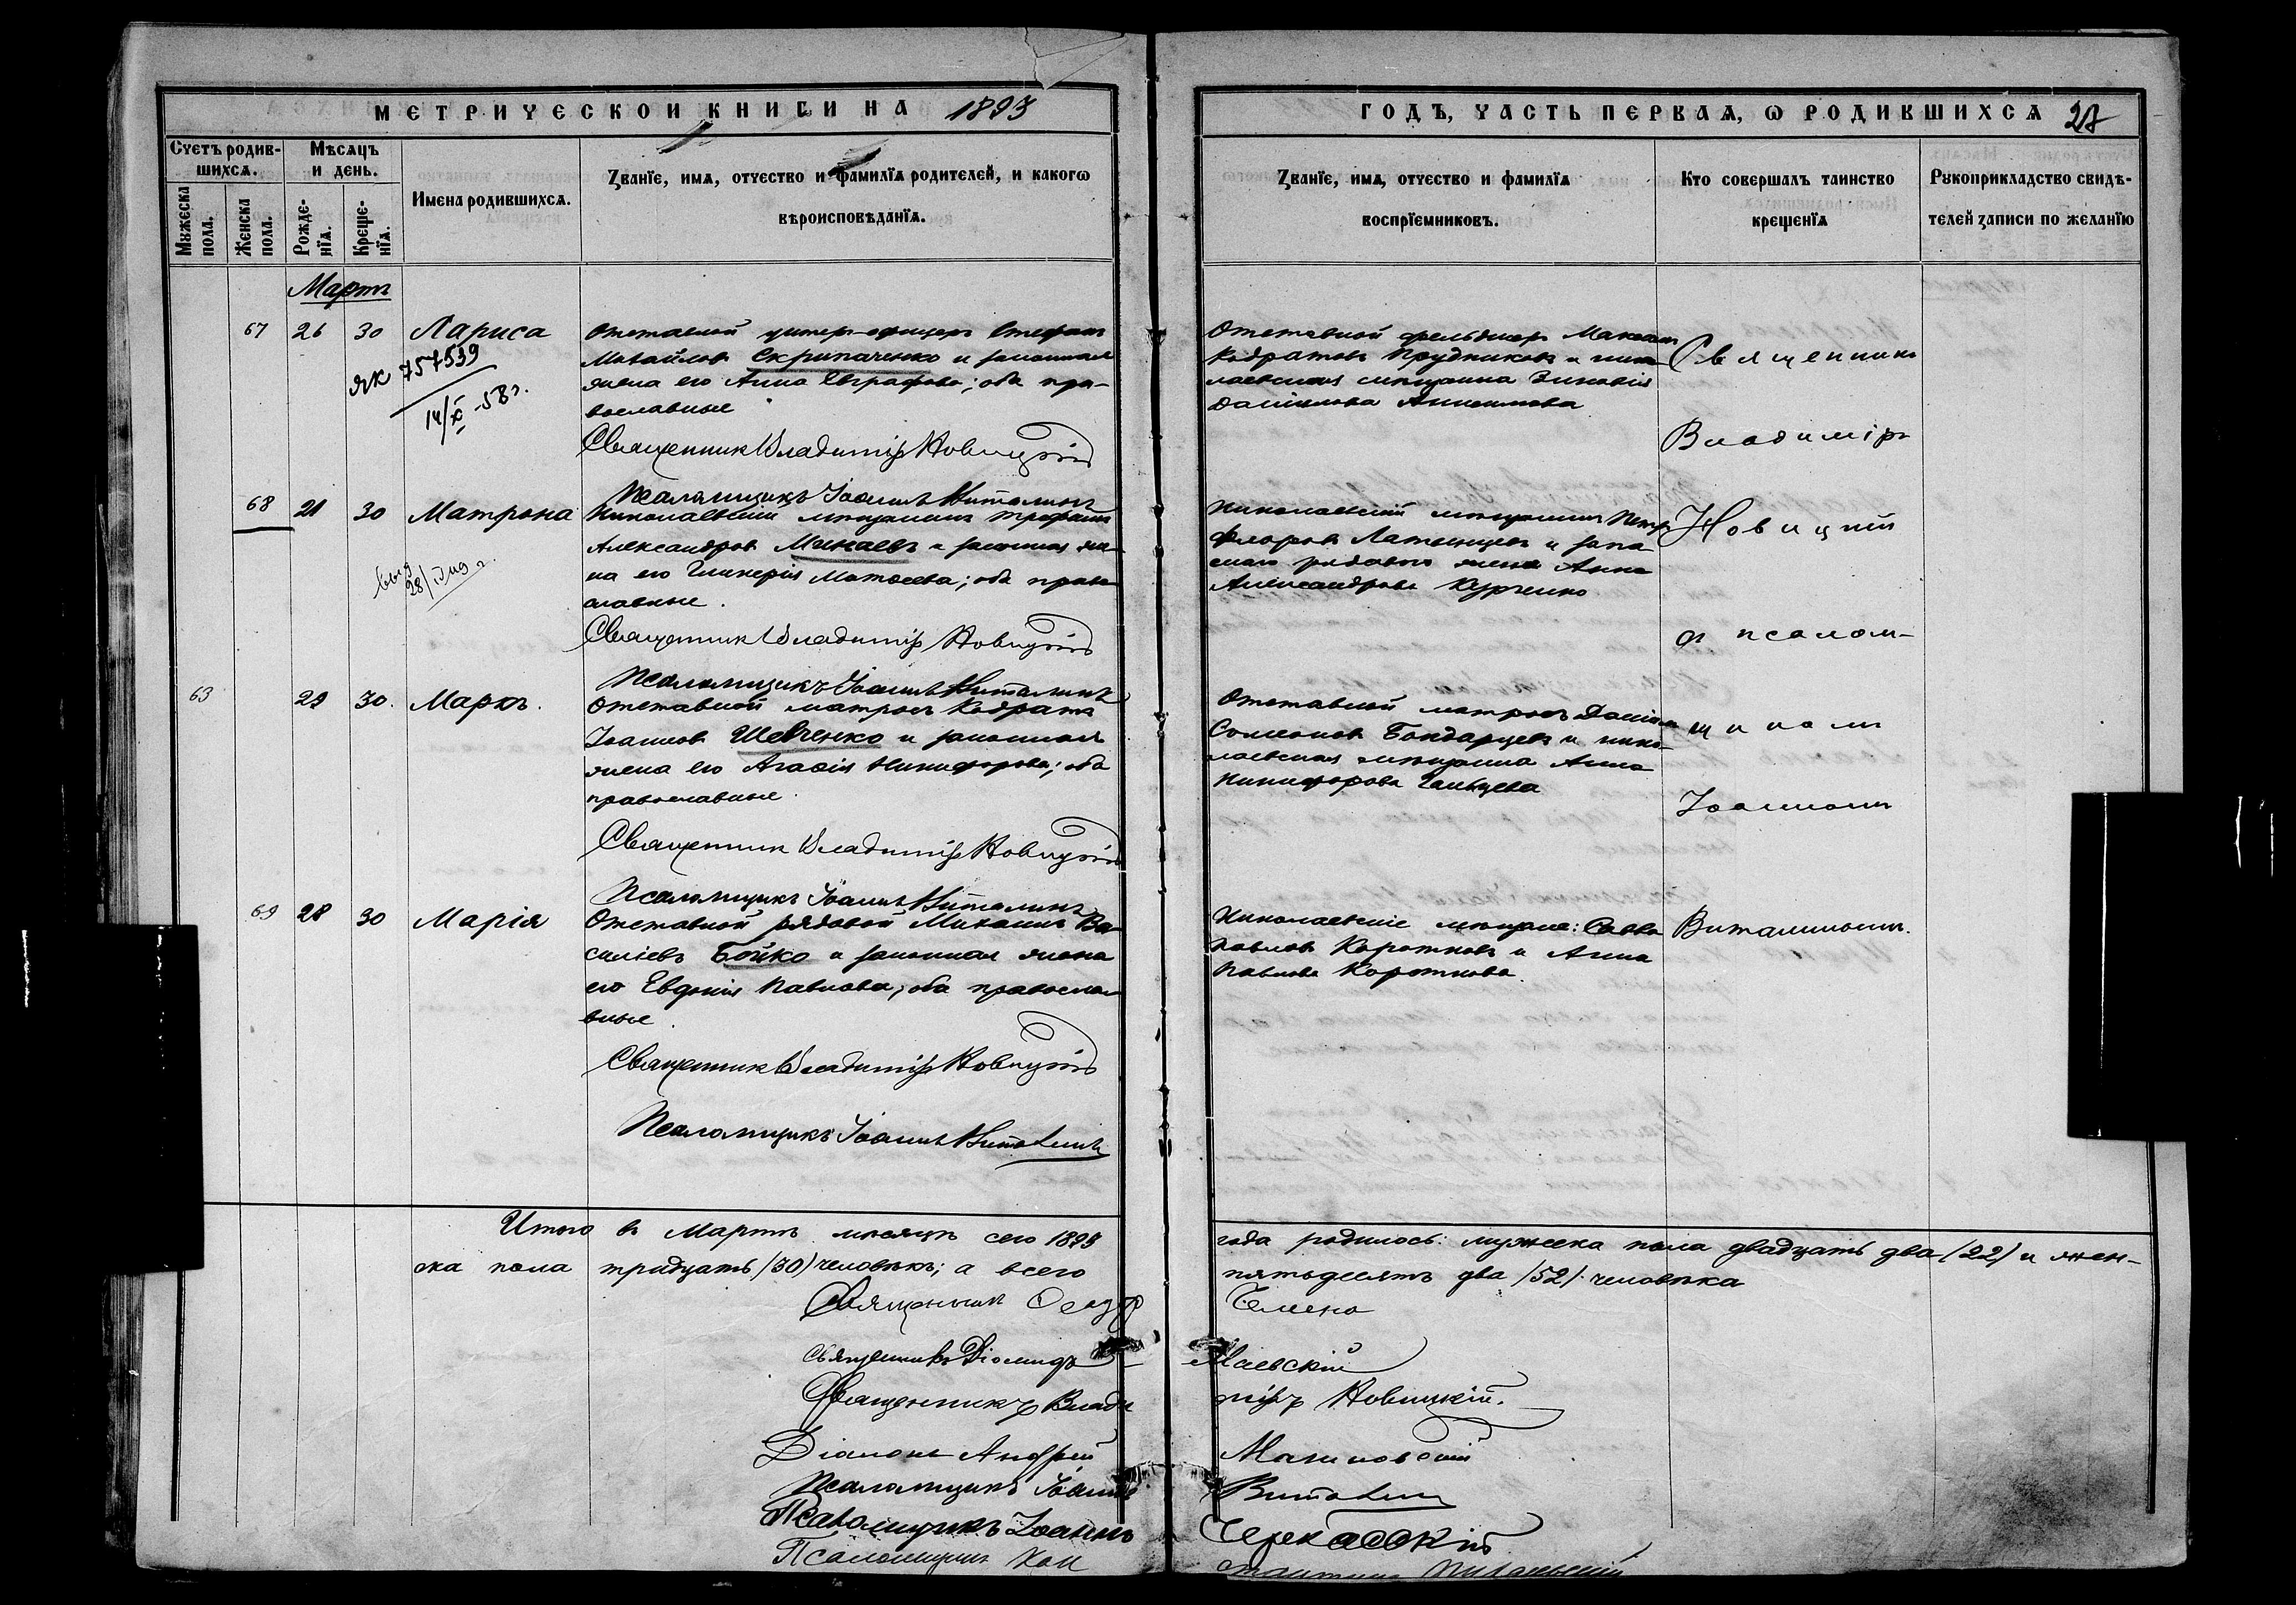 МЕТРИЧЕСКОЙ КНИГИ НА 1893
ГОДЪ, ЧАСТЬ ПЕРВАѦ, Ѡ РОДИВШИХСѦ 27
Счетъ родив-
шихсѧ.
Мѣсѧцъ
и день.
Мꙋжеска
пола.
Женска
пола.
Рожде-
нїѧ.
Креще-
нїѧ.
Имена родившихсѧ.
Званїе, имѧ, отчество и фамилїѧ родителей, и какогѡ
вѣроисповѣданїѧ.
Званїе, имѧ, отчество и фамилїѧ
воспрїемниковъ.
Кто совершалъ таинство
крещенїѧ
Рꙋкоприкладство свидѣ-
телей записи по желанїю
Мартъ
67 26 30 Лариса
ЯК 757539
14/X-58 г.
Отставной унтеръ-офицеръ Стефанъ
Михайловъ Скрипаченко и законная
жена его Анна Евграфова; оба пра-
вославные
Священник Владиміръ Новицкій
Псаломщикъ Іоаннъ Виталинъ
Отставной фельдшеръ Максимъ
Кодратовъ Прудниковъ и нико-
лаевская мѣщанка Зиновія
Даніилова Анисимова
Священникъ
Владиміръ
Новицкій
съ псалом-
щикомъ
Іоанномъ
Виталинымъ.
68 21 30 Матрона
28/
Николаевскій мѣщанинъ Трофимъ
Александровъ Минаевъ и законная же-
на его Гликерія Матѳеева; оба право-
славные.
Священник Владиміръ Новицкій
Псаломщикъ Іоаннъ Виталинъ
Николаевскій мѣщанинъ Петръ
Флоровъ Латынцевъ и запа-
снаго рядового жена Анна
Александрова Курченко
63 29 30. Маркъ.
Отставной матросъ Кодратъ
Іоанновъ Шевченко и законная
жена его Агаѳія Никифорова; оба
православные.
Священник Владиміръ Новицкій
Псаломщикъ Іоаннъ Виталинъ
Отставной матросъ Даніилъ
Симеоновъ Бондарцевъ и нико-
лаевская мѣщанка Анна
Никифорова
69 28 30 Марія
Отставной рядовой Михаилъ Ва-
силіевъ Бойко и законная жена
его Евдокія Павлова; оба православ-
вные.
Священник Владиміръ Новицкій
Псаломщикъ Іоаннъ Виталинъ
Николаевскіе мѣщане: Савва
Павловъ Коротковъ и Анна
Павлова Короткова.
Итого въ Мартѣ мѣсяцѣ сего 1893 года родилось: мужеска пола двадцать два /22/ и жен-
ска пола тридцать /30/ человѣкъ; а всего пятьдесятъ два /52/ человѣка
Священникъ Ѳеодоръ
Священникъ Діомидъ Маевскій
Священникъ Владиміръ Новицкій.
Діаконъ Андрей
Псаломщикъ Іоаннъ Виталинъ
Псаломщикъ Іоаннъ Черкасскій
Псаломщикъ Константинъ